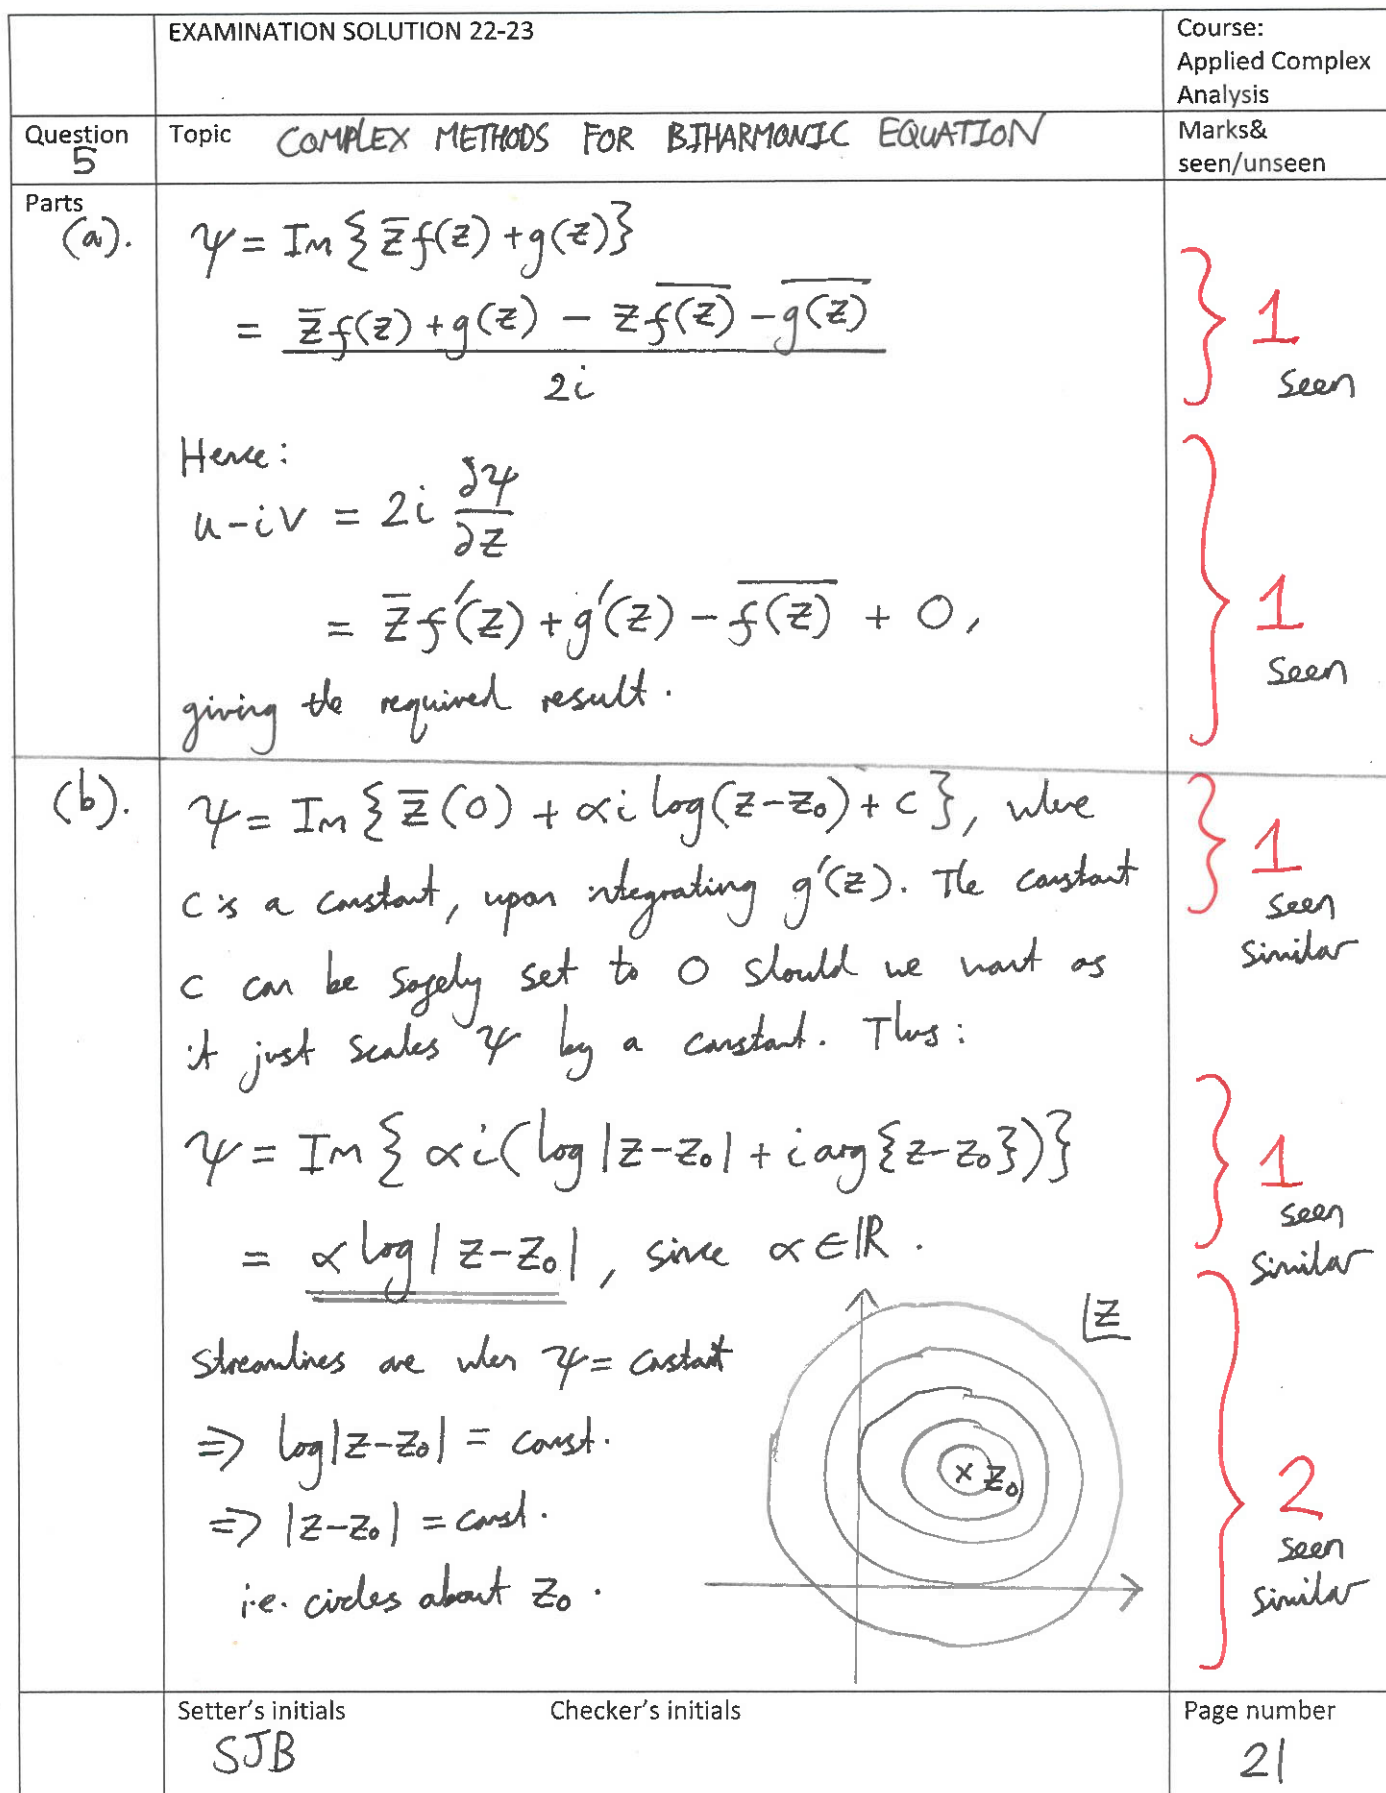 EXAMINATION SOLUTION 22-23
Course:
Applied Complex
Analysis
Question
5
Topic COMPLEX METHODS FOR BIHARMONIC EQUATION
Marks&
seen/unseen
Parts
(a).
ψ = Im{z̅f(z) + g(z)}
= (z̅f(z) + g(z) − z\overline{f(z)} − \overline{g(z)}) / 2i
1
Seen
Hence:
u − iv = 2i ∂ψ/∂z
= z̅f′(z) + g′(z) − \overline{f(z)} + 0,
giving the required result.
1
Seen
(b).
ψ = Im{z̅(0) + αi log(z−z₀) + c}, where
c is a constant, upon integrating g′(z). The constant
c can be safely set to 0 should we want as
it just scales ψ by a constant. Thus:
1
seen
similar
ψ = Im{αi(log|z−z₀| + i arg{z−z₀})}
= α log|z−z₀|, since α∈ℝ.
1
seen
similar
Streamlines are when ψ = constant
⇒ log|z−z₀| = const.
⇒ |z−z₀| = const.
i.e. circles about z₀.
z
× z₀
2
seen
similar
Setter's initials
SJB
Checker's initials
Page number
21